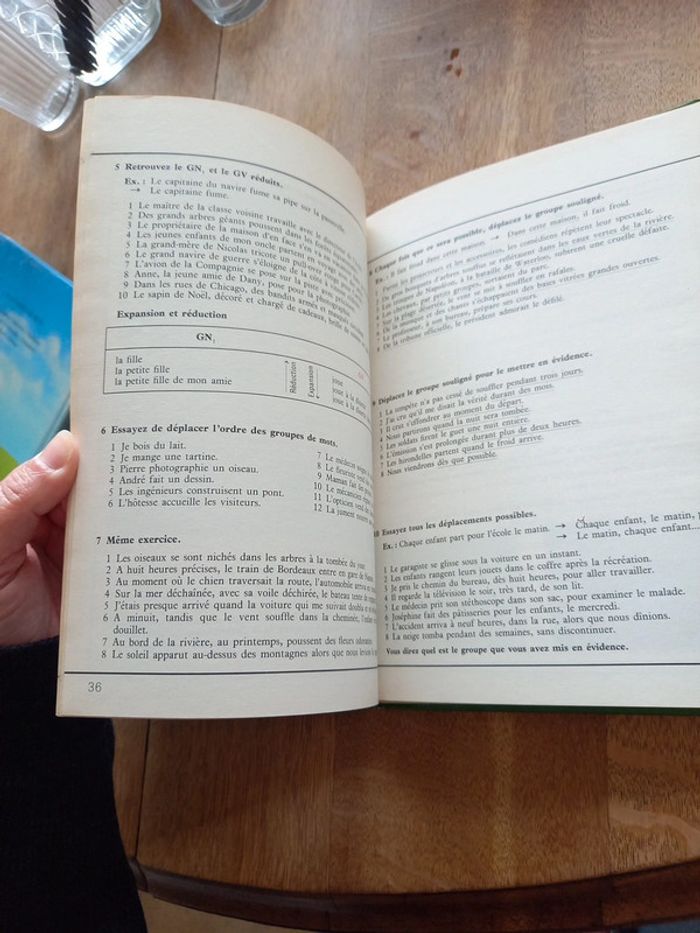 5 Retrouvez le GN1 et le GV réduits.
Ex. : Le capitaine du navire fume sa pipe sur la passerelle.
→ Le capitaine fume.
1 Le maître de la classe voisine travaille avec le
2 Des grands arbres géants poussent dans les forêts
3 Le propriétaire de la maison d'en face s'en va en
4 Les jeunes enfants de mon oncle partent en voyage
5 La grand-mère de Nicolas tricote un pull-over
6 Le grand navire de guerre s'éloigne de la côte à
7 L'avion de la Compagnie se pose sur la piste
8 Anne, la jeune amie de Dany, pose pour la
9 Dans les rues de Chicago, des bandits armés et masqués
10 Le sapin de Noël, décoré et chargé de cadeaux, brille de
Expansion et réduction
GN1
la fille
la petite fille
la petite fille de mon amie
Réduction
Expansion
joue
joue à la
joue à la
6 Essayez de déplacer l'ordre des groupes de mots.
1 Je bois du lait.
2 Je mange une tartine.
3 Pierre photographie un oiseau.
4 André fait un dessin.
5 Les ingénieurs construisent un pont.
6 L'hôtesse accueille les visiteurs.
7 Le médecin
8 Le fleuriste vend
9 Maman fait les
10 Le mécanicien
11 L'opticien vend des
12 La jument nourrit
7 Même exercice.
1 Les oiseaux se sont nichés dans les arbres à la tombée du jour.
2 A huit heures précises, le train de Bordeaux entre en gare de
3 Au moment où le chien traversait la route, l'automobile arriva en
4 Sur la mer déchaînée, avec sa voile déchirée, le bateau tente de
5 J'étais presque arrivé quand la voiture qui me suivait doubla
6 A minuit, tandis que le vent souffle dans la cheminée,
douillet.
7 Au bord de la rivière, au printemps, poussent des fleurs odorantes.
8 Le soleil apparut au-dessus des montagnes alors que nous
36
8 Chaque fois que ce sera possible, déplacez le groupe souligné.
Ex. : Il fait froid dans cette maison. → Dans cette maison, il fait froid.
1 Parmi les projecteurs et les accessoires, les comédiens répètent leur spectacle.
2 De grands arbres touffus se reflétaient dans les eaux vertes de la rivière.
3 Les troupes de Napoléon, à la bataille de Waterloo, subirent une cruelle défaite.
4 Les chevaux, par petits groupes, sortaient du parc.
5 Sur la plage déserte, le vent se mit à souffler en rafales.
6 De la musique et des chants s'échappaient des bases vitrées grandes ouvertes.
7 Le professeur, à son bureau, prépare ses cours.
8 De la tribune officielle, le président admirait le défilé.
9 Déplacez le groupe souligné pour le mettre en évidence.
1 La tempête n'a pas cessé de souffler pendant trois jours.
2 J'ai cru qu'il me disait la vérité durant des mois.
3 Il crut s'effondrer au moment du départ.
4 Nous partirons quand la nuit sera tombée.
5 Les soldats firent le guet une nuit entière.
6 L'émotion s'est prolongée durant plus de deux heures.
7 Les hirondelles partent quand le froid arrive.
8 Nous viendrons dès que possible.
10 Essayez tous les déplacements possibles.
Ex. : Chaque enfant part pour l'école le matin. → Chaque enfant, le matin,
→ Le matin, chaque enfant...
1 Le garagiste se glisse sous la voiture en un instant.
2 Les enfants rangent leurs jouets dans le coffre après la récréation.
3 Je pris le chemin du bureau, dès huit heures, pour aller travailler.
4 Il regarde la télévision le soir, très tard, de son lit.
5 Le médecin prit son stéthoscope dans son sac, pour examiner le malade.
6 Joséphine fait des pâtisseries pour les enfants, le mercredi.
7 L'accident arriva à neuf heures, dans la rue, alors que nous dînions.
8 La neige tomba pendant des semaines, sans discontinuer.
Vous direz quel est le groupe que vous avez mis en évidence.